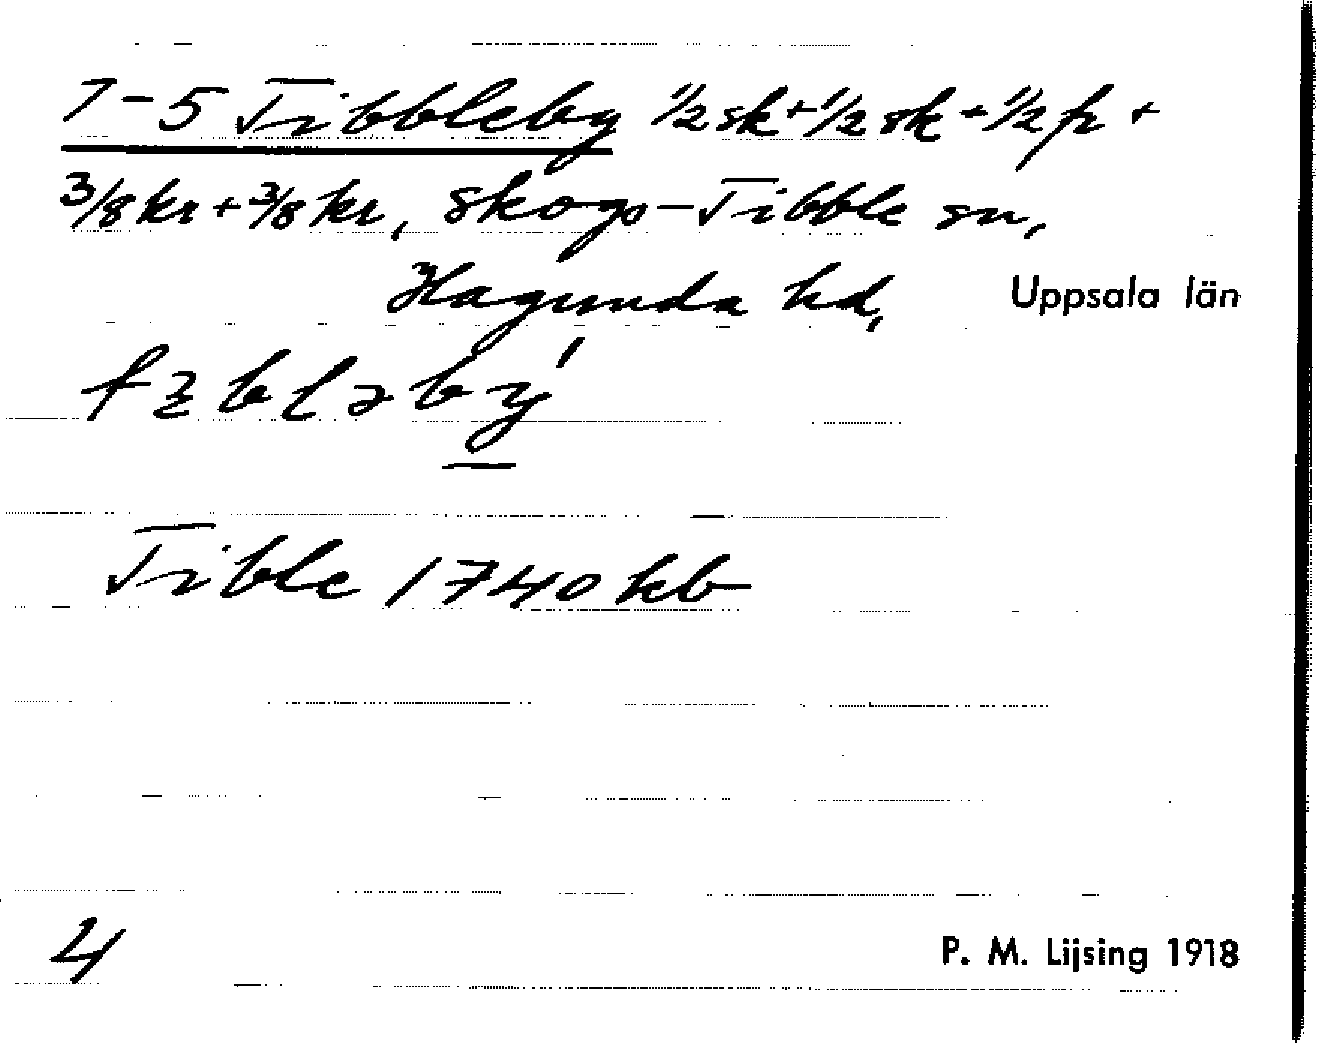 1-5 Tibbleby 1/2 sk + 1/2 sk + 1/2 fr +
3/8 kr + 3/8 kr, Skogs-Tibble sn,
Hagunda hd, Uppsala län
Tible 1740 kb
4 P. M. Lijsing 1918